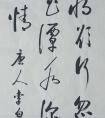 将欲行忽
花潭水深
情
唐人李白